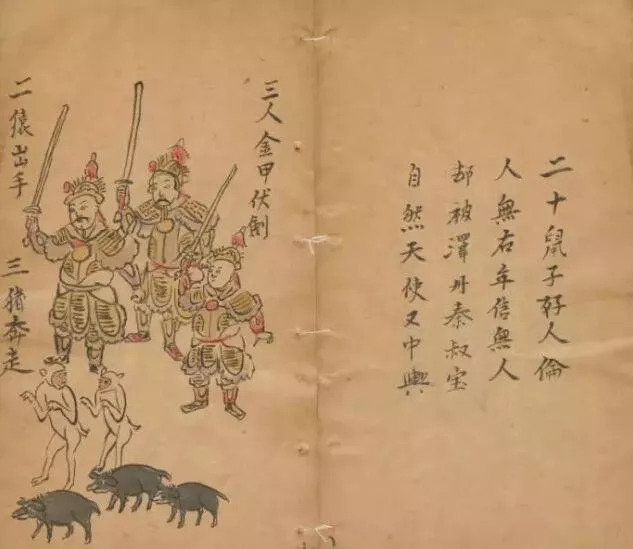 二十鼠子好人倫
人無右年信無人
却被澤秦叔宝
自然天使又中興
三人金甲伏劍
二猿出手
三猪奔走